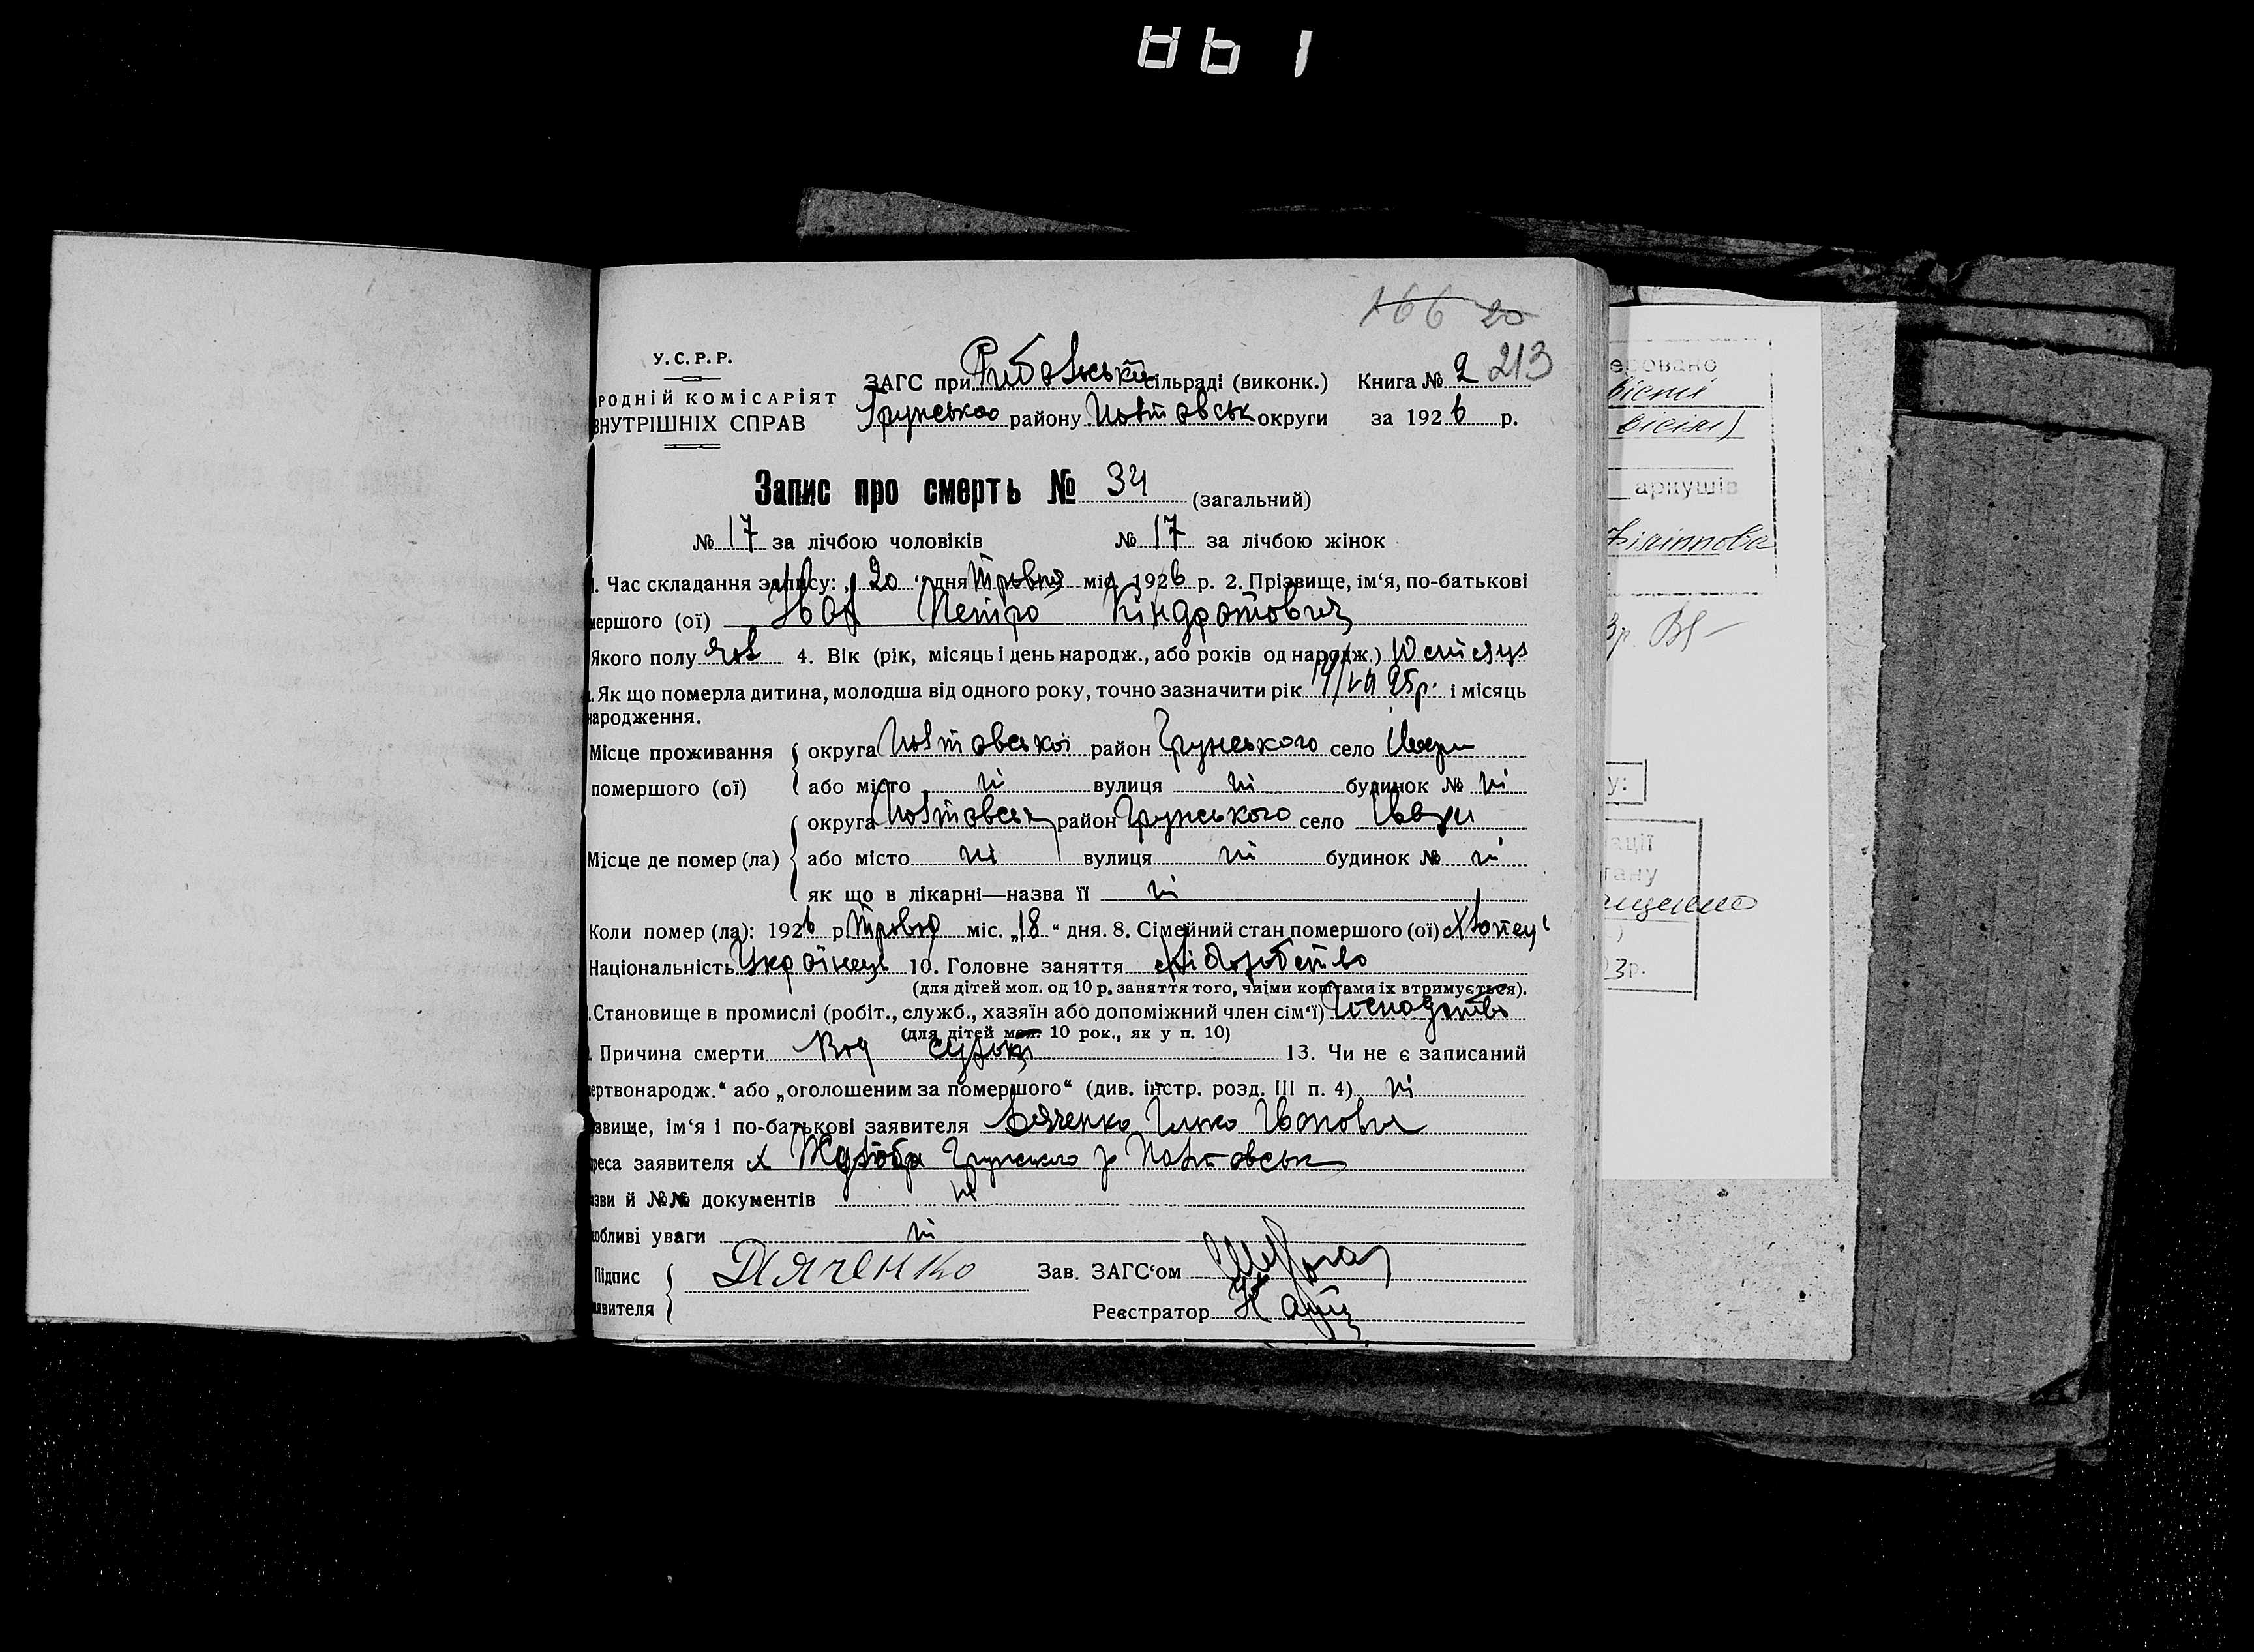 166 20
213
У.С.Р.Р.
РОДНІЙ КОМІСАРІЯТ
ВНУТРІШНІХ СПРАВ
ЗАГС при Рибальській сільраді (виконк.) Книга № 2
Грунського району Полтавськ округи за 1926 р.
Запис про смерть № 34 (загальний)
№ 17 за лічбою чоловіків № 17 за лічбою жінок
1. Час складання запису: „ 20 “ дня Травня міс. 1926 р. 2. Прізвище, ім‘я, по-батькові
мершого (ої) Петро Кіндратович
Якого полу чол 4. Вік (рік, місяць і день народж., або років од народж.) 10 місяця
. Як що померла дитина, молодша від одного року, точно зазначити рік 19/VII 25р. і місяць
народження.
Місце проживання
помершого (ої)
округа Полтавської район Грунського село
або місто ні вулиця ні будинок № ні
Місце де помер (ла)
округа Полтавськ район Грунського село
або місто ні вулиця ні будинок № ні
як що в лікарні—назва її ні
Коли помер (ла): 1926 р. Травня міс. „18“ дня. 8. Сімейний стан помершого (ої) хлопець
Національність Українець 10. Головне заняття хліборобство
(для дітей мол. од 10 р. заняття того, чиїми коштами їх втримується).
. Становище в промислі (робіт., служб., хазяїн або допоміжний член сім‘ї)
(для дітей мол. 10 рок., як у п. 10)
. Причина смерти Від 13. Чи не є записаний
ертвонародж.“ або „оголошеним за помершого“ (див. інстр. розд. III п. 4) ні
звище, ім‘я і по-батькові заявителя Дяченко Ілько Іванович
реса заявителя х Грунського р Полтавськ
азви й №№ документів ні
собливі уваги ні
Підпис
аявителя
Дяченко
Зав. ЗАГС‘ом
Реєстратор
аркушів
Філіппова
у:
ації
тану
3р.